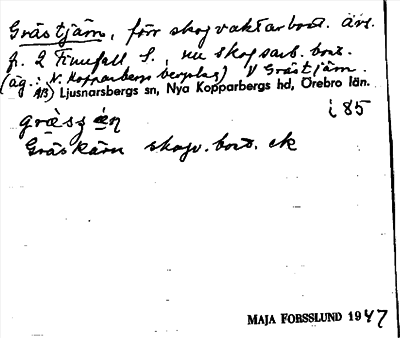 Grästjärn, förr skogvaktarbost. äv.
fr. 2 Finnfall S., nu skogsarb. bost.
(äg.: N. Kopparbergs bergslag) V Grästjärn.
AB) Ljusnarsbergs sn, Nya Kopparbergs hd, Örebro län.
i 85
Gräskärn skogv. bost. ek
MAJA FORSSLUND 1947